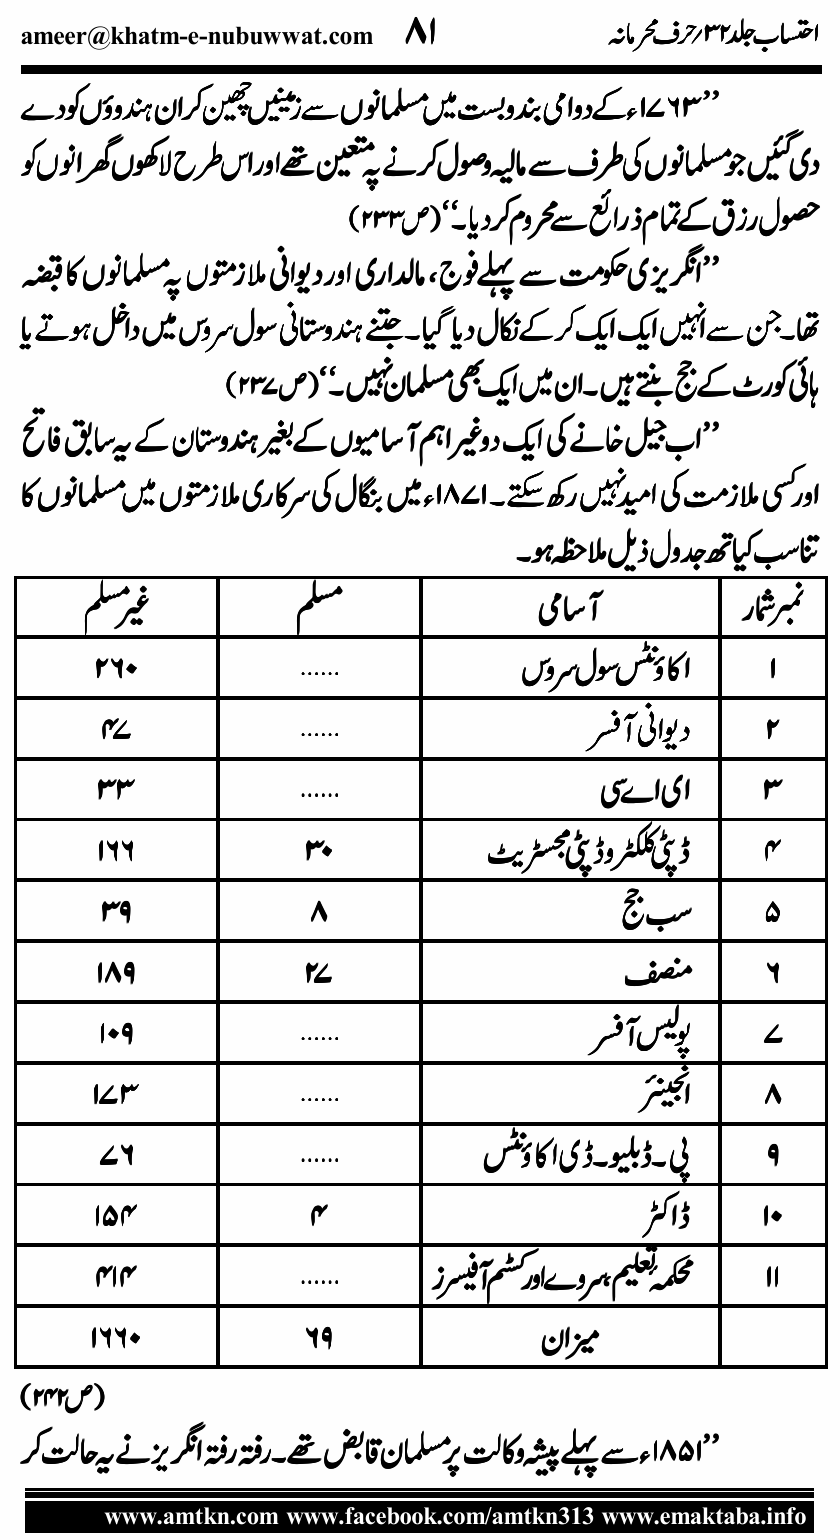 احتساب جلد ۳۲؍حرف محرمانہ ۸۱ ameer@khatm-e-nubuwwat.com
”۱۷۶۳ء کے دوامی بندوبست میں مسلمانوں سے زمینیں چھین کر ان ہندوؤں کو دے
دی گئیں جو مسلمانوں کی طرف سے مالیہ وصول کرنے پہ متعین تھے اور اس طرح لاکھوں گھرانوں کو
حصول رزق کے تمام ذرائع سے محروم کر دیا۔“ (ص۲۳۳)
”انگریزی حکومت سے پہلے فوج، مالداری اور دیوانی ملازمتوں پہ مسلمانوں کا قبضہ
تھا۔ جن سے انہیں ایک ایک کر کے نکال دیا گیا۔ جتنے ہندوستانی سول سروس میں داخل ہوتے یا
ہائی کورٹ کے جج بنتے ہیں۔ ان میں ایک بھی مسلمان نہیں۔“ (ص۲۳۷)
”اب جیل خانے کی ایک دو غیر اہم آسامیوں کے بغیر ہندوستان کے یہ سابق فاتح
اور کسی ملازمت کی امید نہیں رکھ سکتے۔ ۱۸۷۱ء میں بنگال کی سرکاری ملازمتوں میں مسلمانوں کا
تناسب کیا تھ جدول ذیل ملاحظہ ہو۔
نمبر شمار آسامی مسلم غیر مسلم
۱ اکاؤنٹس سول سروس ...... ۲۶۰
۲ دیوانی آفسر ...... ۴۷
۳ ای اے سی ...... ۳۳
۴ ڈپٹی کلکٹر و ڈپٹی مجسٹریٹ ۳۰ ۱۶۶
۵ سب جج ۸ ۳۹
۶ منصف ۲۷ ۱۸۹
۷ پولیس آفسر ...... ۱۰۹
۸ انجینئر ...... ۱۷۳
۹ پی۔ ڈبلیو۔ ڈی اکاؤنٹس ...... ۷۶
۱۰ ڈاکٹر ۴ ۱۵۴
۱۱ محکمہ تعلیم، سروے اور کسٹم آفیسرز ...... ۴۱۴
میزان ۶۹ ۱۶۶۰
(ص۲۴۲)
”۱۸۵۱ء سے پہلے پیشہ وکالت پر مسلمان قابض تھے۔ رفتہ رفتہ انگریز نے یہ حالت کر
www.amtkn.com www.facebook.com/amtkn313 www.emaktaba.info